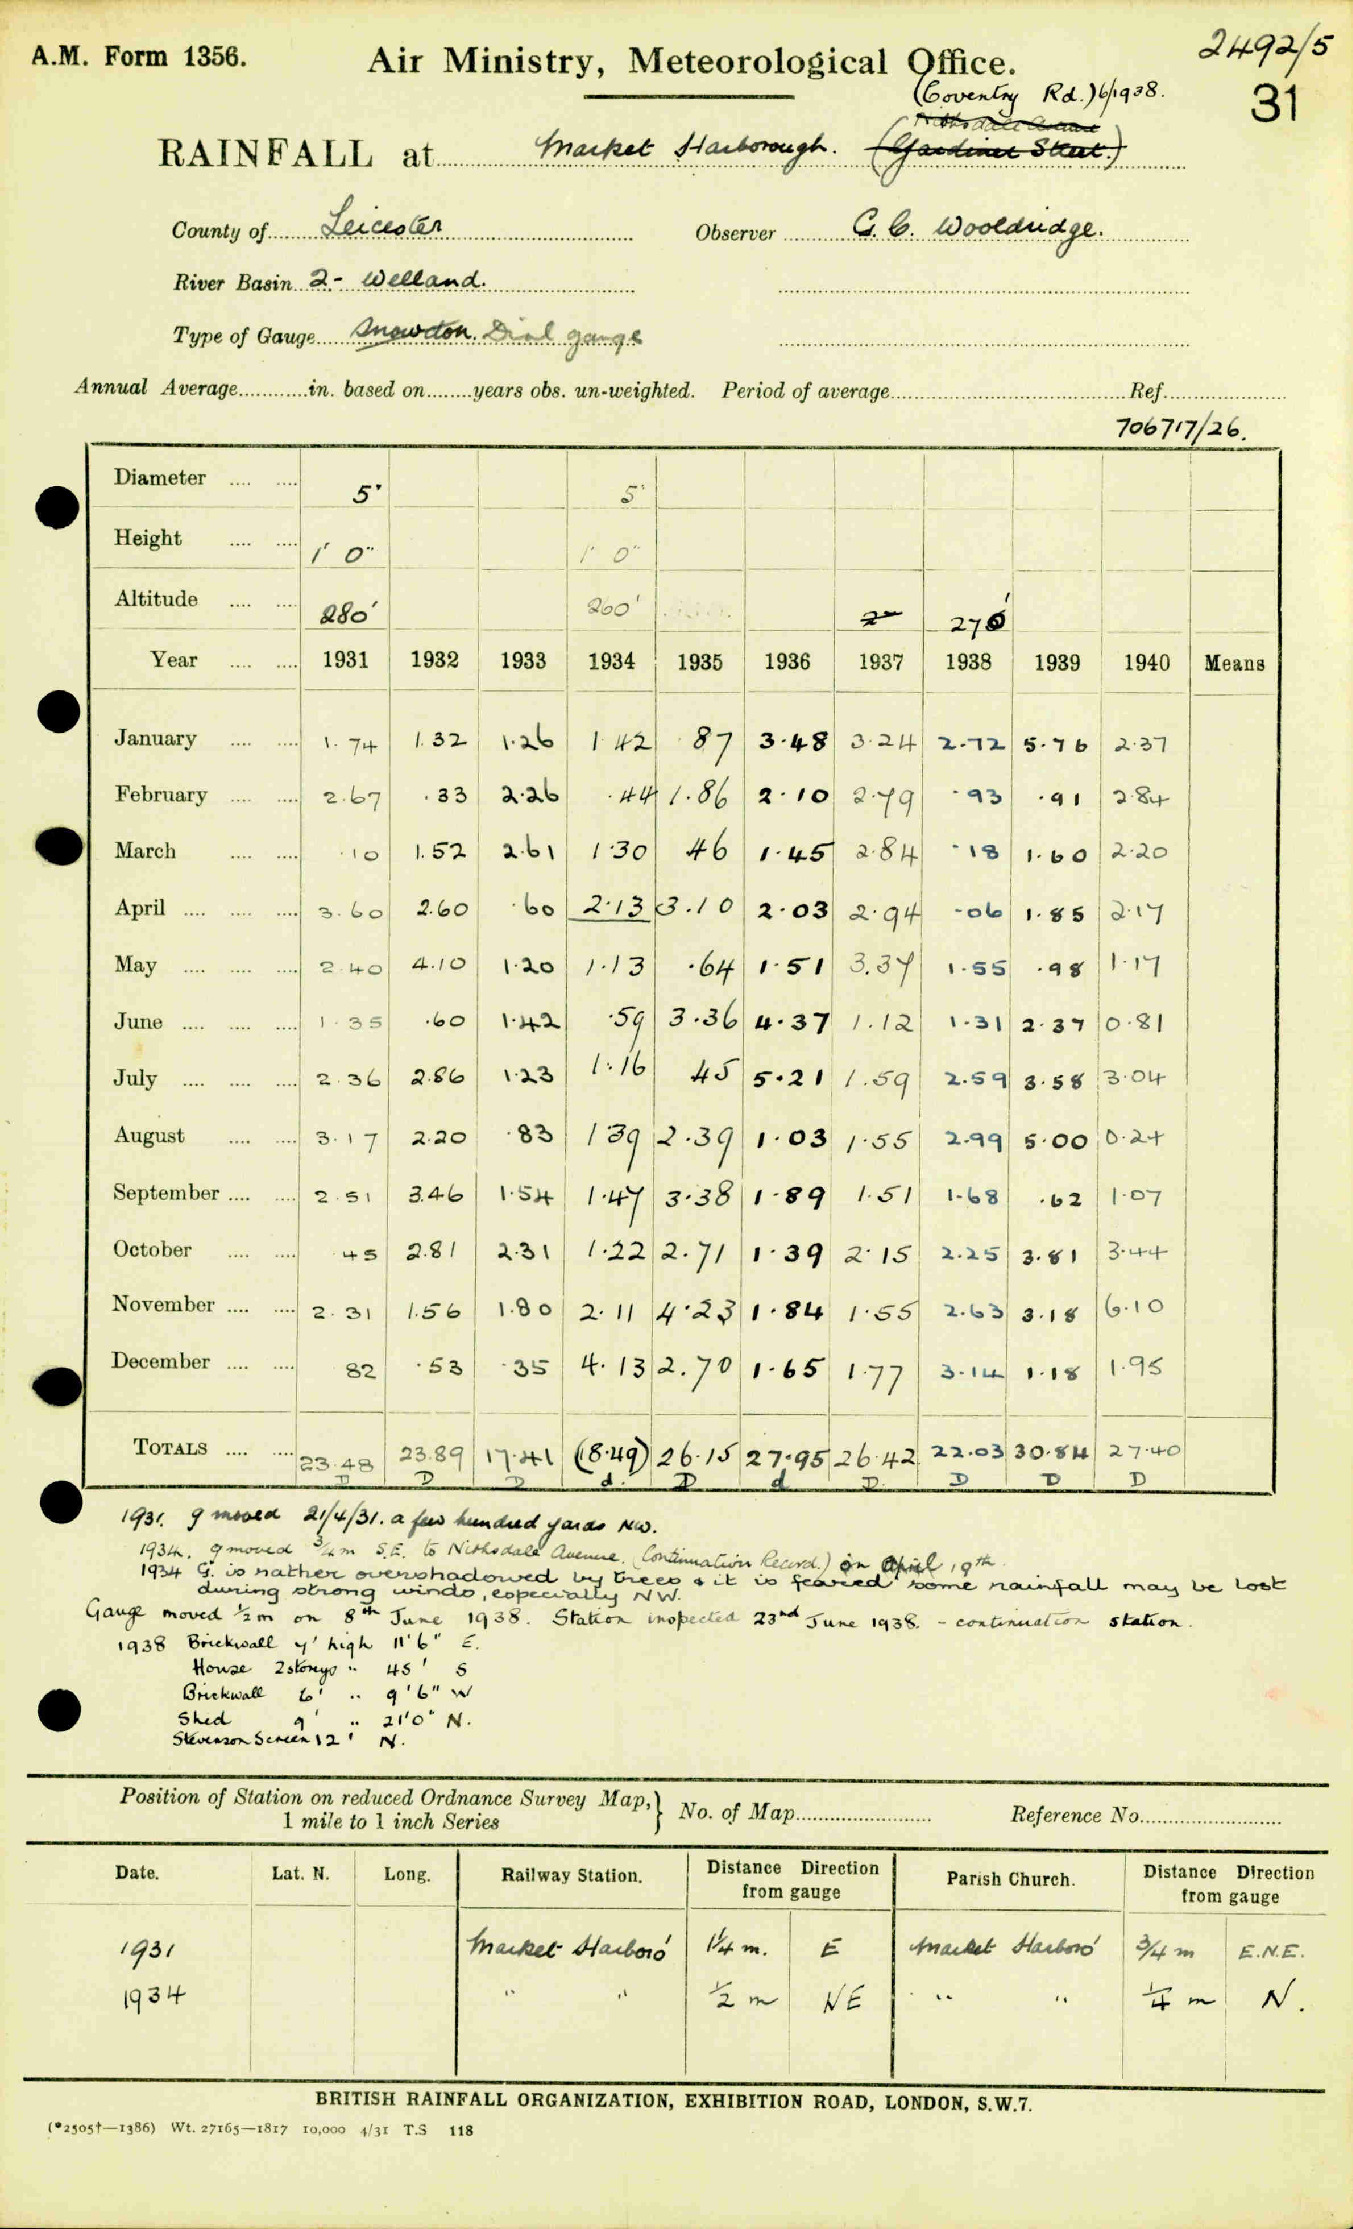 A.M. Form 1356.
Air Ministry, Meteorological Office.
2492/5
31
(Coventry Rd.) 6/1938.
Nithsdale Avenue
RAINFALL at Market Harborough. (Gardiner Street.)
County of Leicester
Observer G. C. Wooldridge.
River Basin 2 - Welland.
Type of Gauge Snowdon. Dial gauge
Annual Average in. based on years obs. un-weighted. Period of average Ref.
706717/26.
Diameter 5" 5"
Height 1' 0" 1' 0"
Altitude 280' 260' 270'
Year 1931 1932 1933 1934 1935 1936 1937 1938 1939 1940 Means
January 1.74 1.32 1.26 1.42 .87 3.48 3.24 2.72 5.76 2.37
February 2.67 .33 2.26 .44 1.86 2.10 2.79 .93 .91 2.84
March .10 1.52 2.61 1.30 46 1.45 2.84 .18 1.60 2.20
April 3.60 2.60 .60 2.13 3.10 2.03 2.94 .06 1.85 2.17
May 2.40 4.10 1.20 1.13 .64 1.51 3.37 1.55 .98 1.17
June 1.35 .60 1.42 .59 3.36 4.37 1.12 1.31 2.37 0.81
July 2.36 2.86 1.23 1.16 45 5.21 1.59 2.59 3.58 3.04
August 3.17 2.20 .83 1 39 2.39 1.03 1.55 2.99 5.00 0.24
September 2.51 3.46 1.54 1.47 3.38 1.89 1.51 1.68 .62 1.07
October 45 2.81 2.31 1.22 2.71 1.39 2.15 2.25 3.81 3.44
November 2.31 1.56 1.80 2.11 4.23 1.84 1.55 2.63 3.18 6.10
December 82 .53 .35 4.13 2.70 1.65 1.77 3.14 1.18 1.95
TOTALS 23.48 23.89 17.41 (18.49) 26.15 27.95 26.42 22.03 30.84 27.40
D D D d. D d D. D D D
1931. g moved 21/4/31. a few hundred yards NW.
1934. g moved 3/4 m S.E. to Nithsdale Avenue. (Continuation Record.) on April 19th.
1934 G. is rather overshadowed by trees & it is feared some rainfall may be lost
during strong winds, especially NW.
Gauge moved ½ m on 8th June 1938. Station inspected 23rd June 1938. - continuation station.
1938 Brickwall 4' high 11'6" E.
House 2 storeys " 45' S
Brickwall 6' " 9'6" W
Shed 9' " 21'0" N.
Stevenson Screen 12' N.
Position of Station on reduced Ordnance Survey Map, } No. of Map Reference No.
1 mile to 1 inch Series
Date. Lat. N. Long. Railway Station. Distance Direction from gauge Parish Church. Distance Direction from gauge
1931 Market Harboro' 1¼ m. E Market Harboro' ¾ m E.N.E.
1934 " " ½ m NE " " ¼ m N.
BRITISH RAINFALL ORGANIZATION, EXHIBITION ROAD, LONDON, S.W.7.
(*2505†—1386) Wt. 27165—1817 10,000 4/31 T.S 118